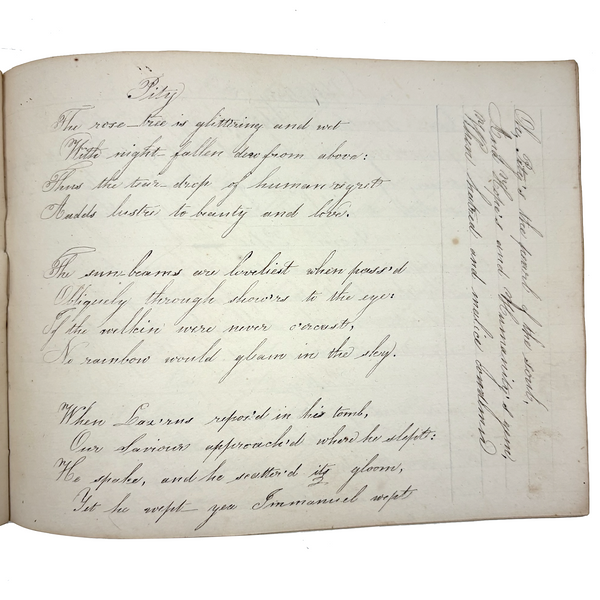 Pity
The rose-tree is glittering and wet
With night-fallen dew from above:
Thus the tear drop of human regret
Aadds lustre to beauty and love.
The sun-beams are loveliest when pass'd
Obliquely through show'rs to the eye:
If the welkin were never o'ercast,
No rainbow would gleam in the sky.
When Laz'rus repos'd in his tomb,
Our Saviour approach'd where he slept:
He spake, and he scatter'd its gloom,
Yet he wept yea Immanuel wept
Oh, Pity's the pearl of the soul,
And Hope's and Humanity's gem
When hatred and malice condemn'd